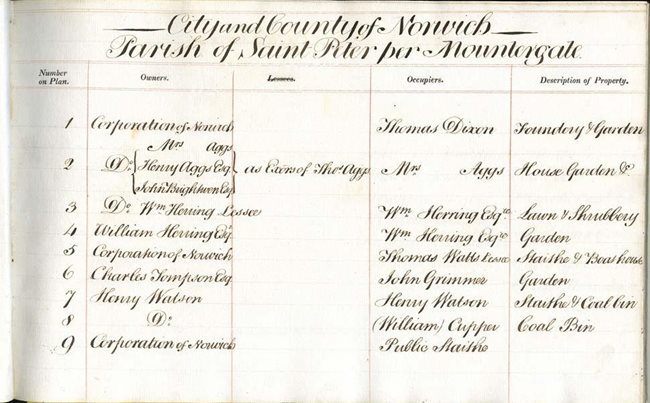 City and County of Norwich
Parish of Saint Peter per Mountergate
Number on Plan. Owners. Lessees. Occupiers. Description of Property.
1 Corporation of Norwich Thomas Dixon Foundery & Garden
Mrs Aggs
2 Do. Henry Aggs Esq as Exors of Thos Aggs Mrs Aggs House Garden &c
John Brightwen Esq
3 Do Wm Herring Lessee Wm Herring Esqre Lawn & Shrubbery
4 William Herring Esqr Wm Herring Esqre Garden
5 Corporation of Norwich Thomas Watts Lessee Staithe &
6 Charles Tompson Esq John Grimmer Garden
7 Henry Watson Henry Watson Staithe & Coal bin
8 Do. (William) Cupper Coal Bin
9 Corporation of Norwich Public Staithe